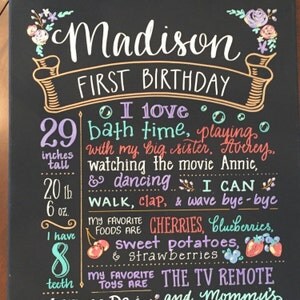 Madison
FIRST BIRTHDAY
29
inches
tall
20 lb
6 oz.
I have
8
teeth
I love
bath time, playing
with my big sister,
watching the movie Annie,
& dancing
I CAN
WALK, clap, & wave bye-bye
MY FAVORITE
FOODS ARE
CHERRIES, blueberries,
sweet potatoes,
& strawberries
MY FAVORITE
TOYS ARE
THE TV REMOTE